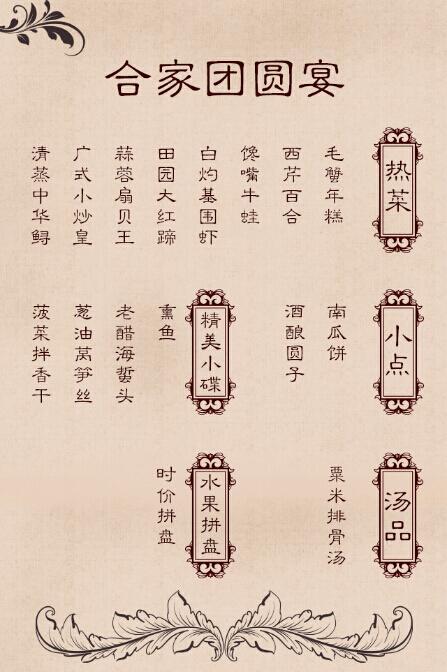 合家团圆宴
热菜
毛蟹年糕
西芹百合
馋嘴牛蛙
白灼基围虾
田园大红蹄
蒜蓉扇贝王
广式小炒皇
清蒸中华鲟
小点
南瓜饼
酒酿圆子
精美小碟
熏鱼
老醋海蜇头
葱油莴笋丝
菠菜拌香干
汤品
粟米排骨汤
水果拼盘
时价拼盘